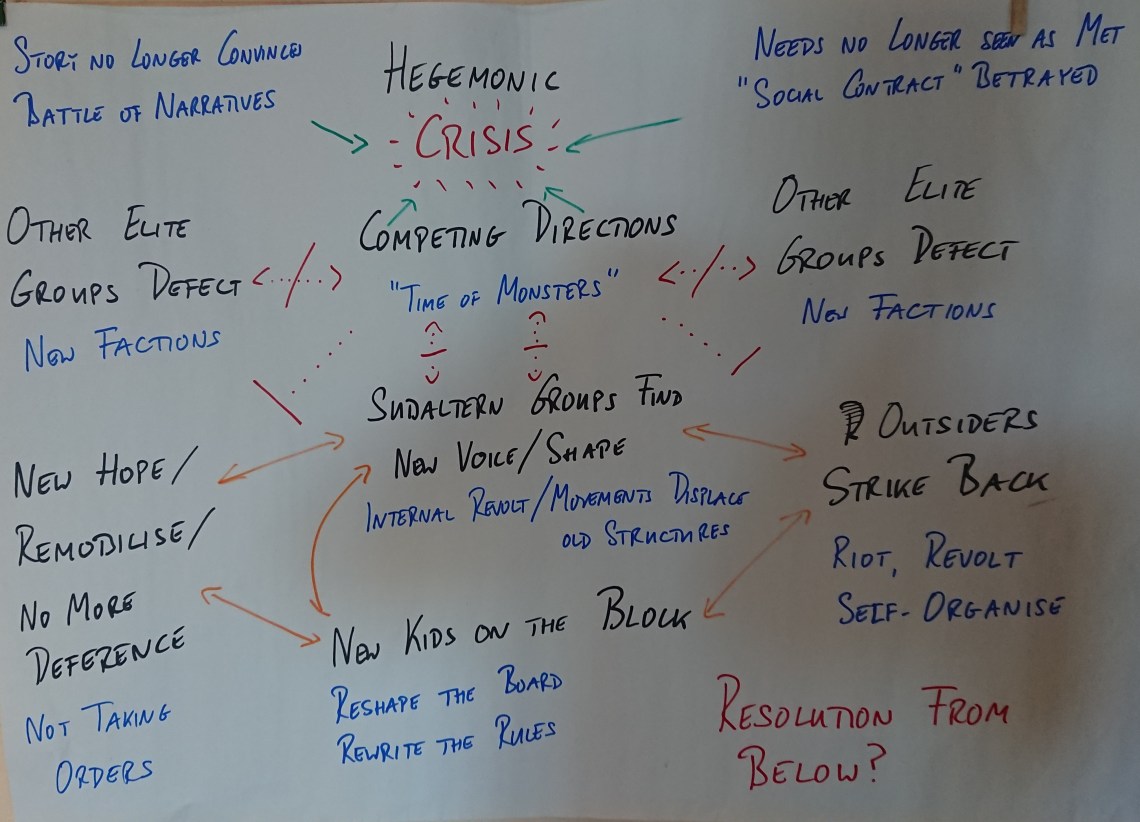 STORY NO LONGER CONVINCES
BATTLE OF NARRATIVES
HEGEMONIC
CRISIS
NEEDS NO LONGER SEEN AS MET
"SOCIAL CONTRACT" BETRAYED
OTHER ELITE
GROUPS DEFECT
NEW FACTIONS
COMPETING DIRECTIONS
"TIME OF MONSTERS"
OTHER ELITE
GROUPS DEFECT
NEW FACTIONS
SUBALTERN GROUPS FIND
NEW VOICE/SHAPE
INTERNAL REVOLT/MOVEMENTS DISPLACE
OLD STRUCTURES
NEW HOPE/
REMOBILISE/
NO MORE
DEFERENCE
NOT TAKING
ORDERS
OUTSIDERS
STRIKE BACK
RIOT, REVOLT
SELF-ORGANISE
NEW KIDS ON THE BLOCK
RESHAPE THE BOARD
REWRITE THE RULES
RESOLUTION FROM
BELOW?